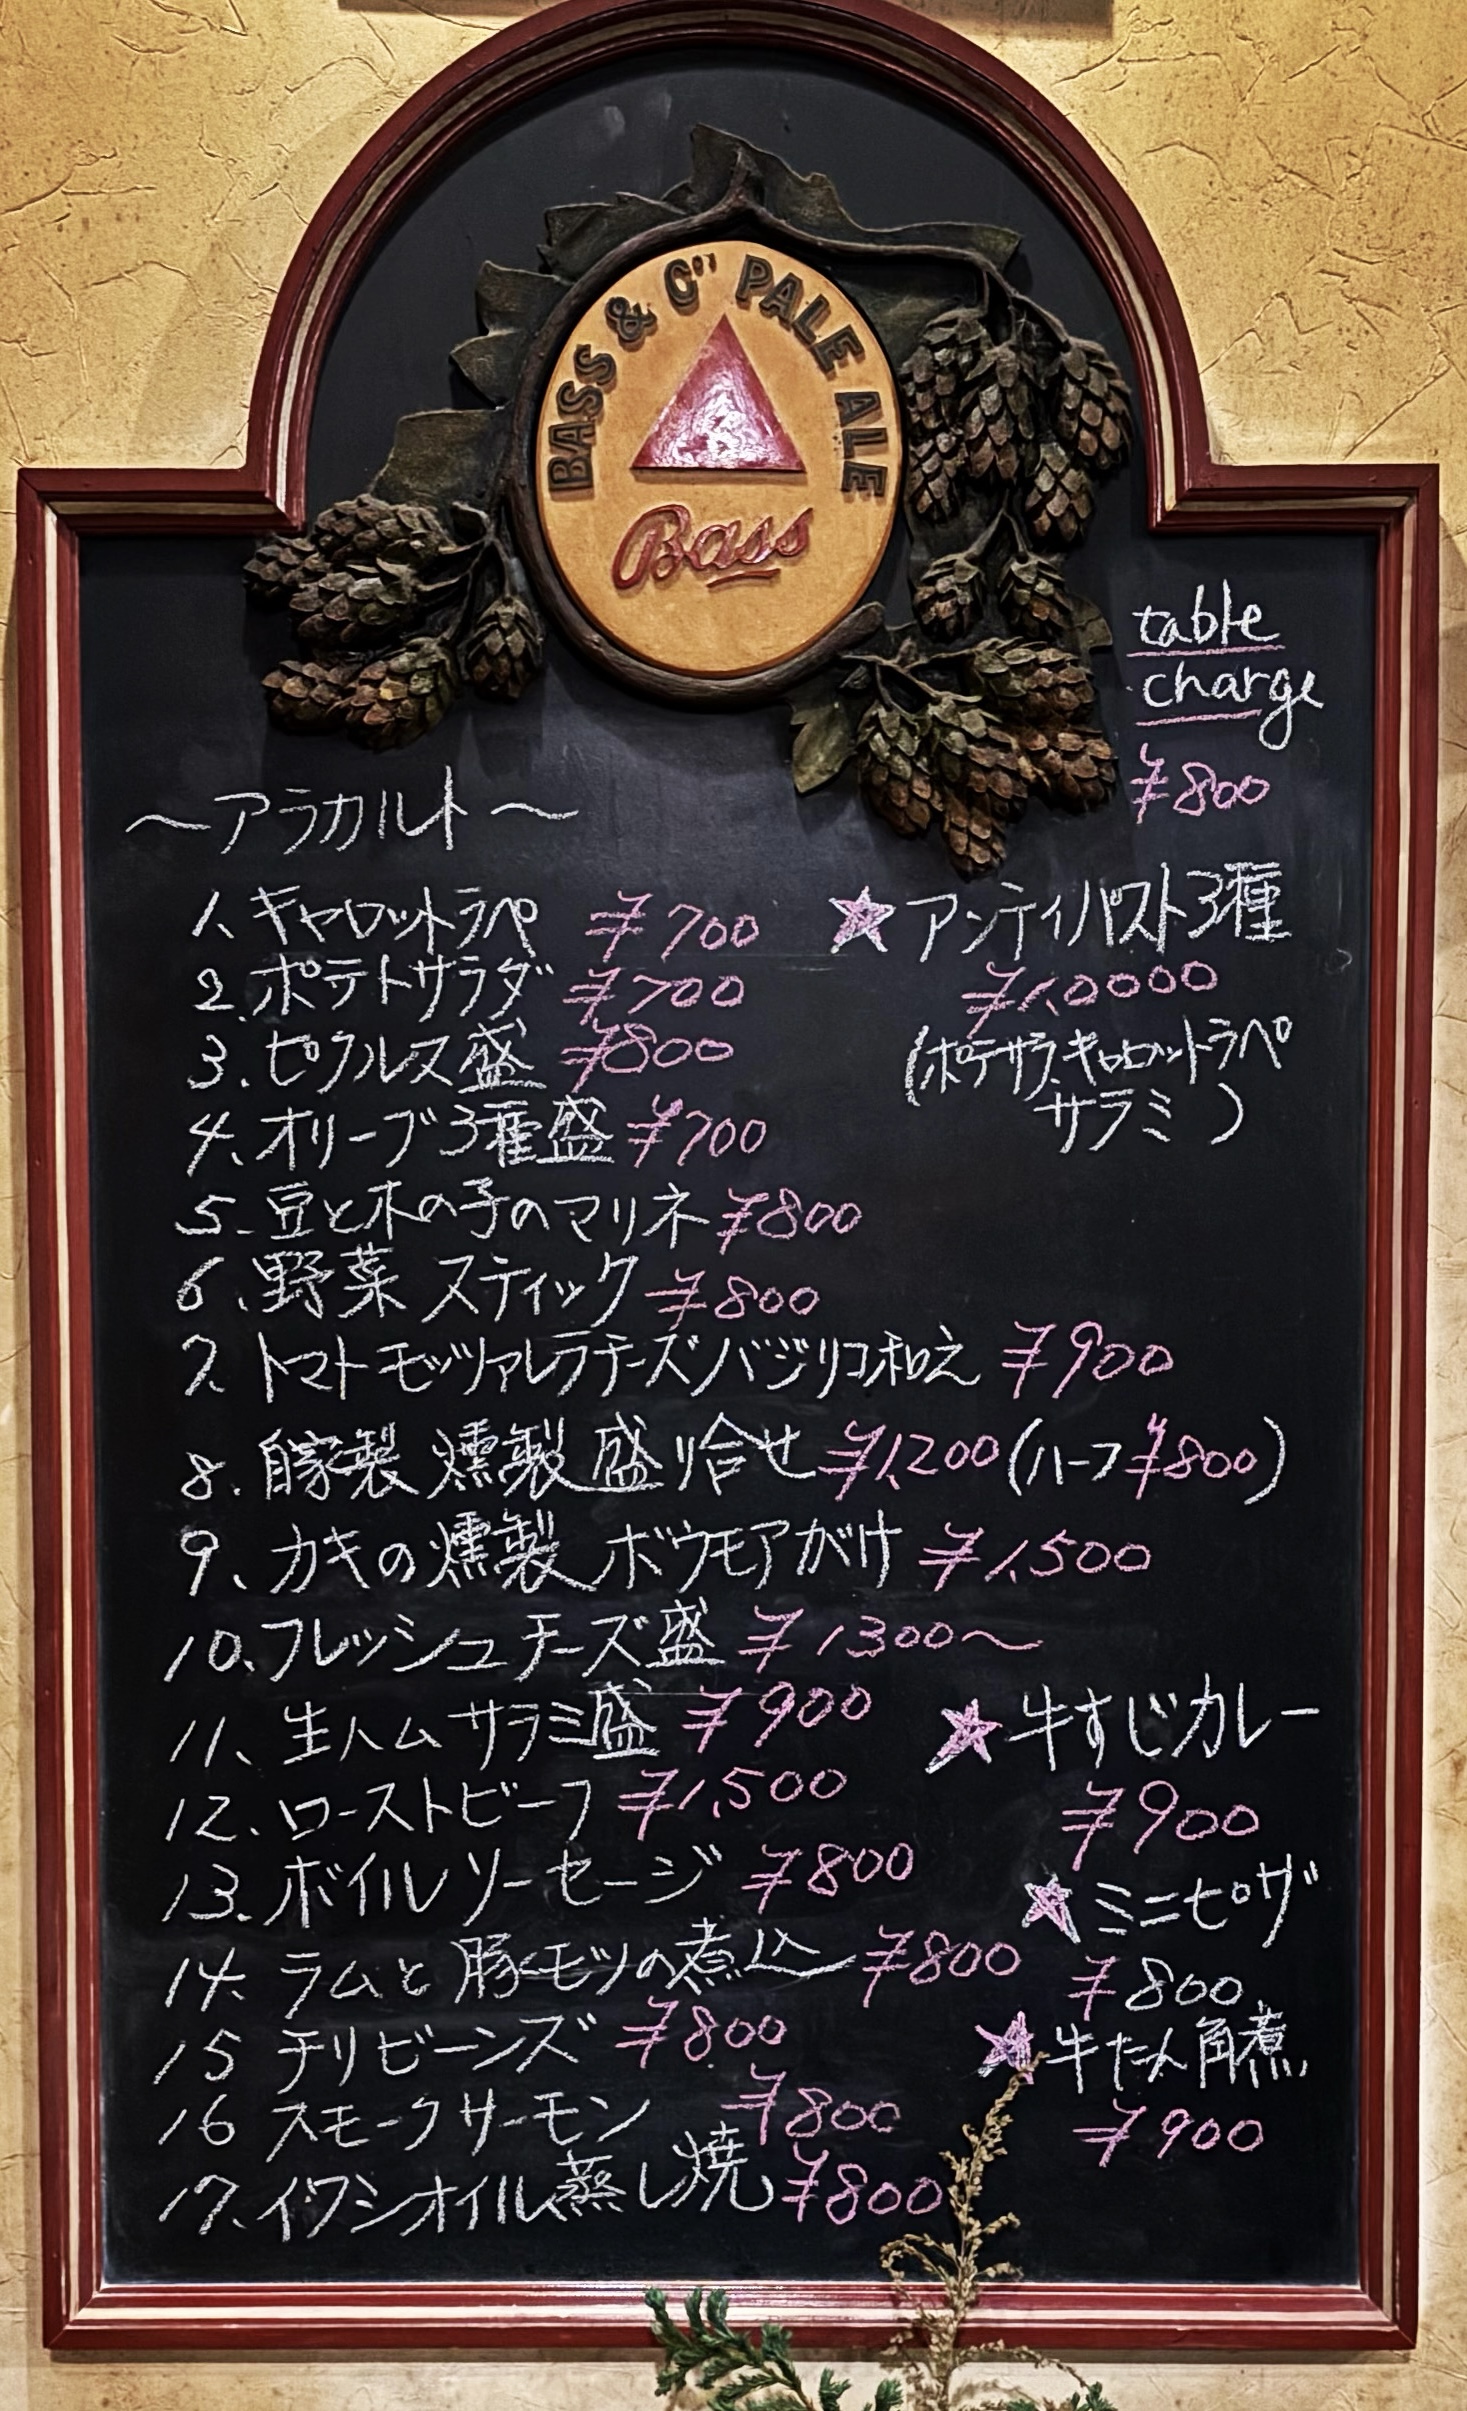 BASS & Co PALE ALE
Bass
table
charge
¥800
〜アラカルト〜
1. キャロットラペ ¥700
2. ポテトサラダ ¥700
3. ピクルス盛 ¥800
4. オリーブ3種盛 ¥700
5. 豆と木の子のマリネ ¥800
6. 野菜スティック ¥800
7. トマトモッツァレラチーズバジリコ和え ¥900
8. 自家製燻製盛り合せ ¥1,200(ハーフ¥800)
9. カキの燻製ボウモアがけ ¥1,500
10. フレッシュチーズ盛 ¥1300〜
11. 生ハムサラミ盛 ¥900
12. ローストビーフ ¥1,500
13. ボイルソーセージ ¥800
14. ラムと豚モツの煮込 ¥800
15 チリビーンズ ¥800
16 スモークサーモン ¥800
17. イワシオイル蒸し焼 ¥800
★アンティパスト3種
¥1,0000
(ポテサラ、キャロットラペ
サラミ)
★牛すじカレー
¥900
★ミニピザ
¥800
★牛たん角煮
¥900